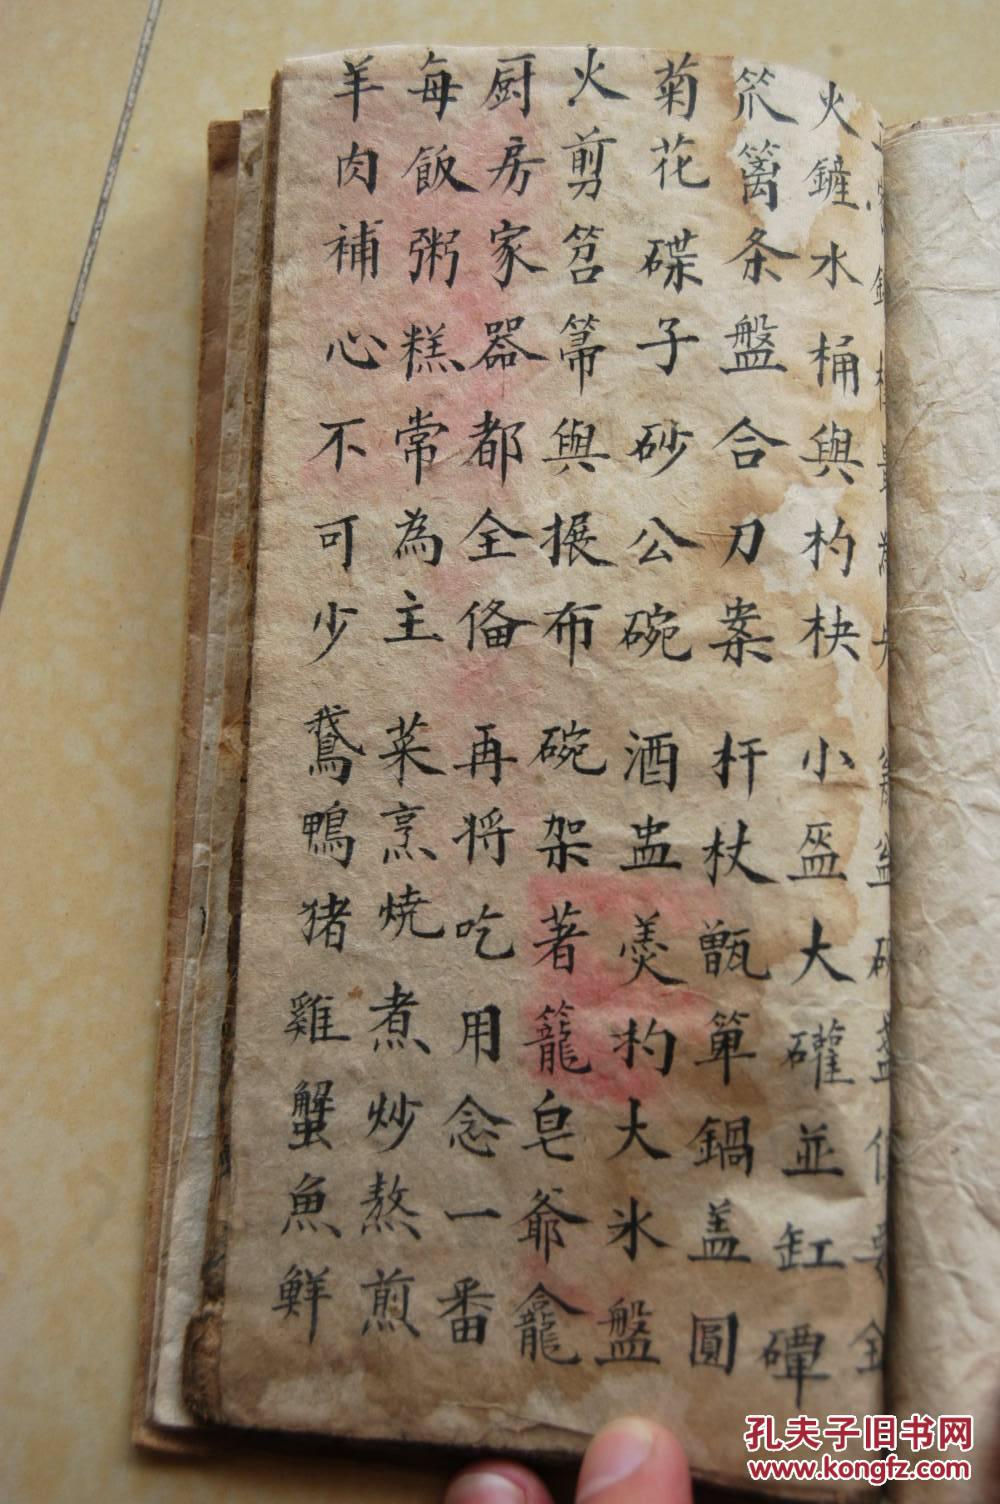 火鏟水桶與杓柍 小盔大礶並缸磹
笊篱条盤合刀案 杆杖甑箄鍋盖圓
菊花碟子砂公碗 酒盅羮杓大氷盤
火剪笤箒與搌布 碗架著籠皂爺龕
厨房家器都全俻 再将吃用念一番
每飯粥糕常為主 菜烹燒煮炒熬煎
羊肉補心不可少 鵞鴨猪雞蟹魚鮮
孔夫子旧书网
www.kongfz.com